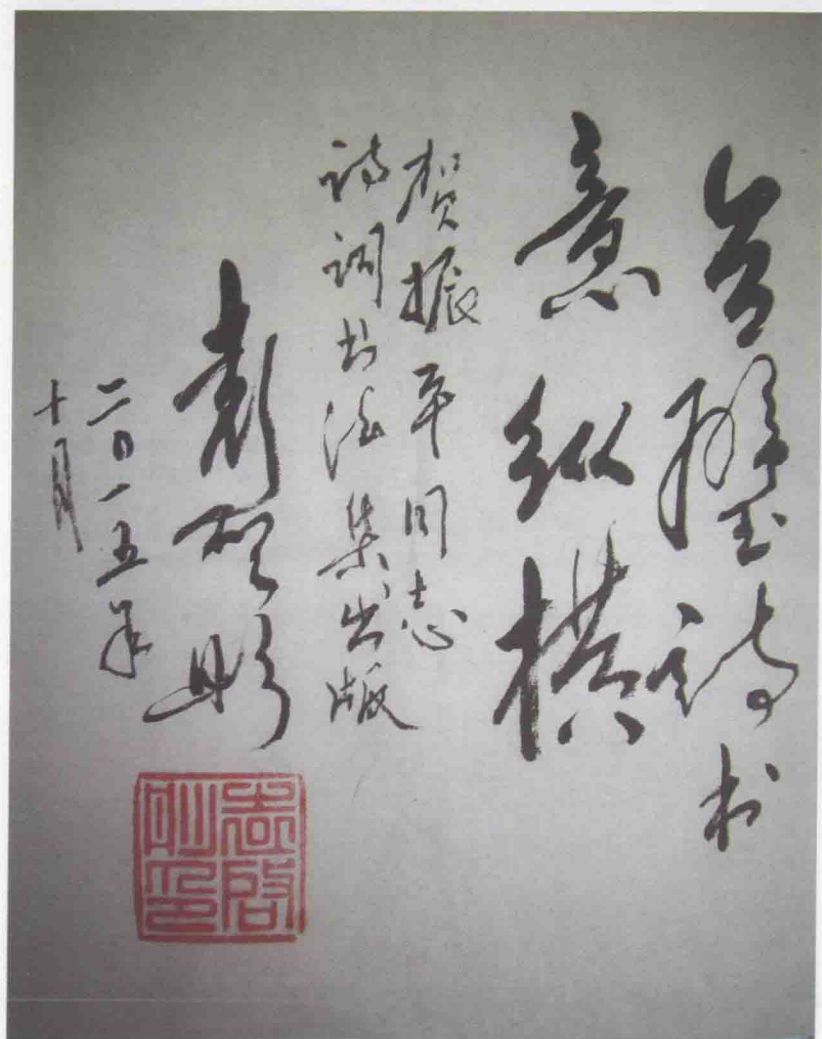 合璧诗书
意纵横
贺振平同志
诗词书法集出版
袁启彤
二〇一五年
十月